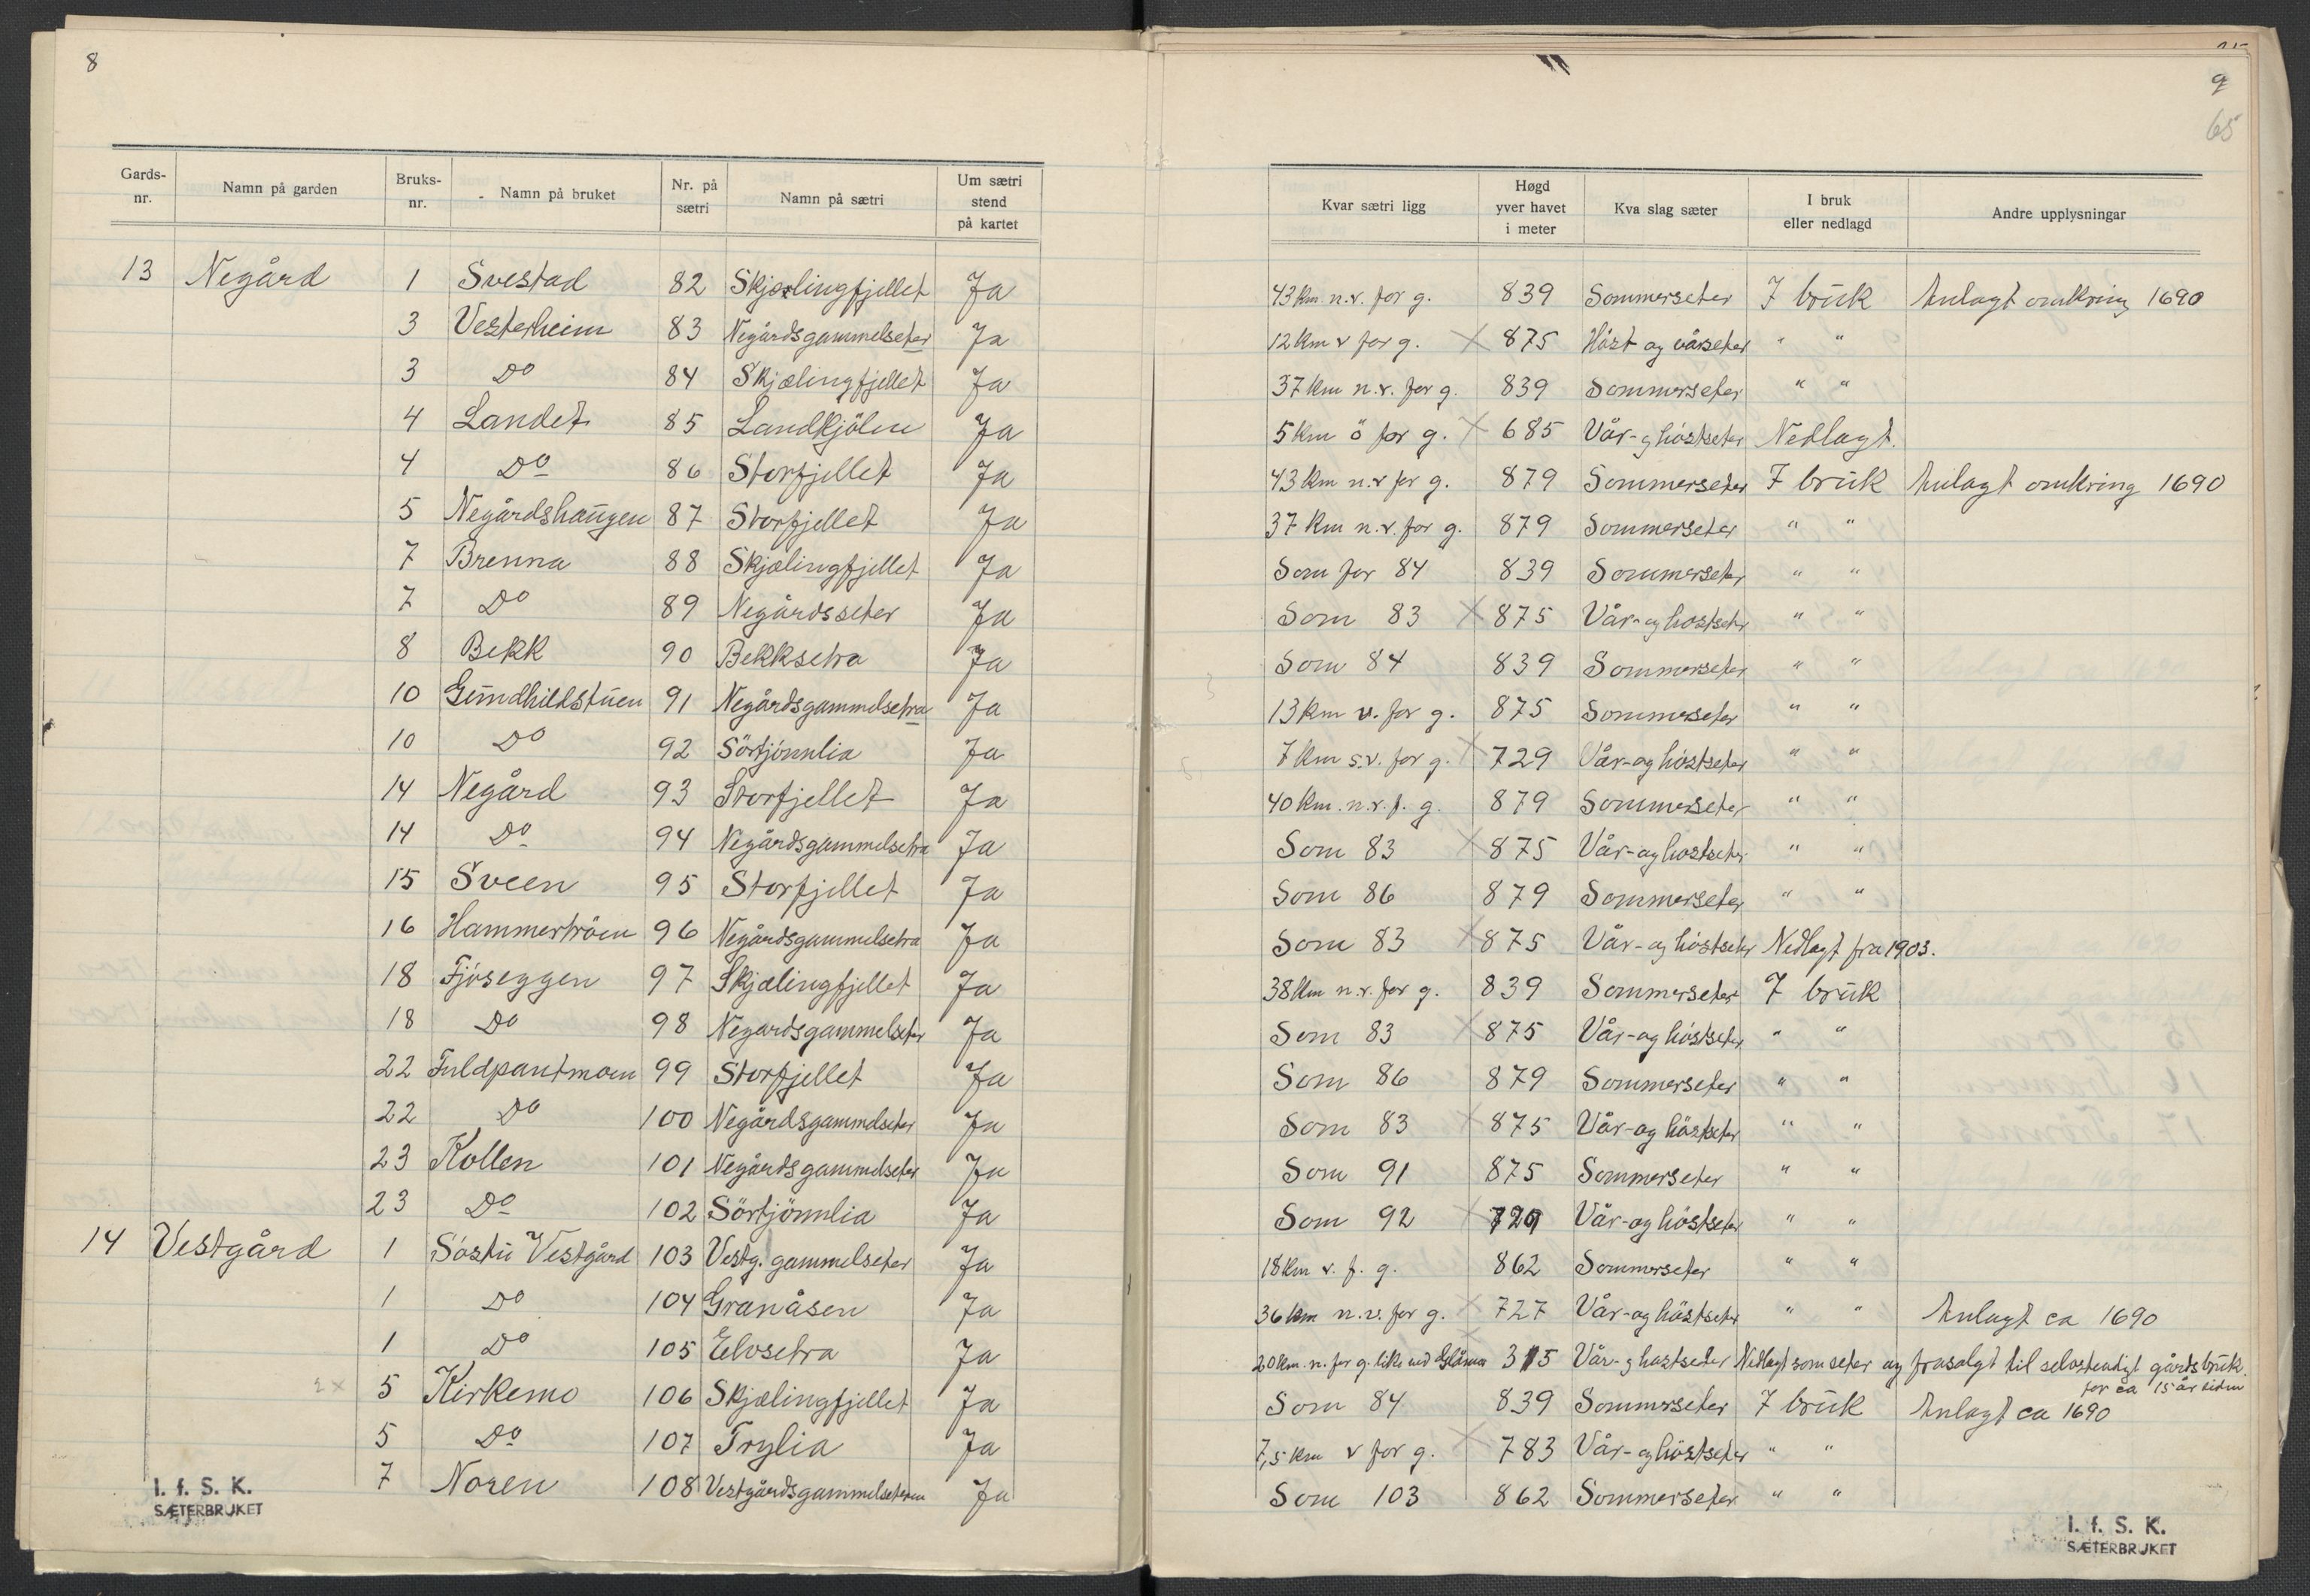 8
Gards-nr. Namn på garden Bruks-nr. Namn på bruket Nr. på sætri Namn på sætri Um sætri stend på kartet
13 Negård 1 Svestad 82 Skjælingfjellet Ja
3 Vesterheim 83 Negårdsgammelseter Ja
3 Do 84 Skjælingfjellet Ja
4 Landet 85 Landkjölen Ja
4 Do 86 Storfjellet Ja
5 Negårdshaugen 87 Storfjellet Ja
7 Brenna 88 Skjælingfjellet Ja
7 Do 89 Negårdsseter Ja
8 Bekk 90 Bekksetra Ja
10 Gundhildstuen 91 Negårdsgammelsetra Ja
10 Do 92 Sörtjönnlia Ja
14 Negård 93 Storfjellet Ja
14 Do 94 Negårdsgammelsetra Ja
15 Sveen 95 Storfjellet Ja
16 Hammertröen 96 Negårdsgammelsetra Ja
18 Fjöseggen 97 Skjælingfjellet Ja
18 Do 98 Negardsgammelseter Ja
22 Fuldpantmoen 99 Storfjellet Ja
22 Do 100 Negårdsgammelseter Ja
23 Kollen 101 Negårdsgammelseter Ja
23 Do 102 Sörtjönnlia Ja
14 Vestgård 1 Söstu Vestgård 103 Vestg. gammelseter Ja
1 Do 104 Granåsen Ja
1 Do 105 Elvsetra Ja
5 Kirkemo 106 Skjælingfjellet Ja
5 Do 107 Trylia Ja
7 Noren 108 Vestgårdsgammelseteren Ja
I. f. S. K.
SÆTERBRUKET
9
65
Kvar sætri ligg Høgd yver havet i meter Kva slag sæter I bruk eller nedlagd Andre upplysningar
43 km n.v. for g. 839 Sommerseter I bruk Anlagt omkring 1690
12 km v for g. X 875 Höst og vårseter " "
37 km n.v. for g. 839 Sommerseter " "
5 km ö for g. X 685 Vår- g höstseter Nedlagt.
43 km n.v for g. 879 Sommerseter I bruk Anlagt omkring 1690
37 km n.v. for g. 879 Sommerseter " "
Som for 84 839 Sommerseter " "
Som 83 X 875 Vår- og höstseter " "
Som 84 839 Sommerseter " "
13 km v. for g. 875 Sommerseter " "
7 km s.v. for g. X 729 Vår- og höstseter " "
40 km. n.v. f. g. 879 Sommerseter " "
Som 83 X 875 Vår- og höstseter " "
Som 86 879 Sommerseter " "
Som 83 X 875 Vår- og höstseter Nedlagt fra 1903.
38 km n.v. for g. 839 Sommerseter I bruk
Som 83 X 875 Vår- og höstseter " "
Som 86 879 Sommerseter " "
Som 83 X 875 Vår- og höstseter " "
Som 91 875 Sommerseter " "
Som 92 X 729 Vår- og höstseter " "
18 km v. f. g. 862 Sommerseter " "
36 km n.v. for g. X 727 Vår- og höstseter " " Anlagt ca 1690
20 km. n. for g. like ved Glåma 315 Vår- g høstseter Nedlagt som seter og frasolgt til selvstendigt gårdsbruk.
for ca 15 år siden
Som 84 839 Sommerseter I bruk Anlagt ca 1690
7,5 km v for g. X 783 Vår- og höstseter " "
Som 103 862 Sommerseter " "
I. f. S. K.
SÆTERBRUKET